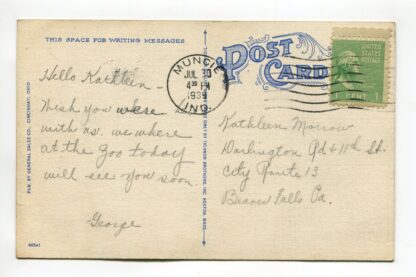 THIS SPACE FOR WRITING MESSAGES
Hello Kathleen –
Wish you were
with us. we where
at the zoo today
will see you soon.
George
PUB. BY GENERAL SALES CO., CINCINNATI, OHIO
ONLY BY TICHNOR BROTHERS, INC. BOSTON, MASS.
POST CARD
MUNCIE
JUL 30
4 30 PM
1939
IND.
UNITED
STATES
POSTAGE
1 CENT 1
Kathleen Morrow
Darlington Rd & 11th St.
City Route 13
Beaver Falls Pa.